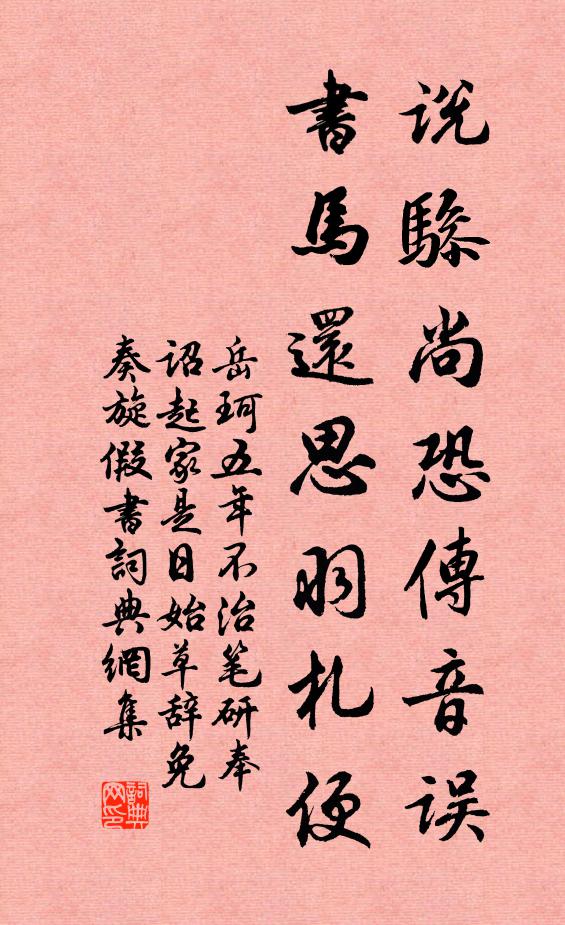 说驂尚恐傳音误
書馬還思羽札便
岳珂五年不治笔研奉
诏起家是日始草辞免
奏旋假書詞典網集
詞典网印